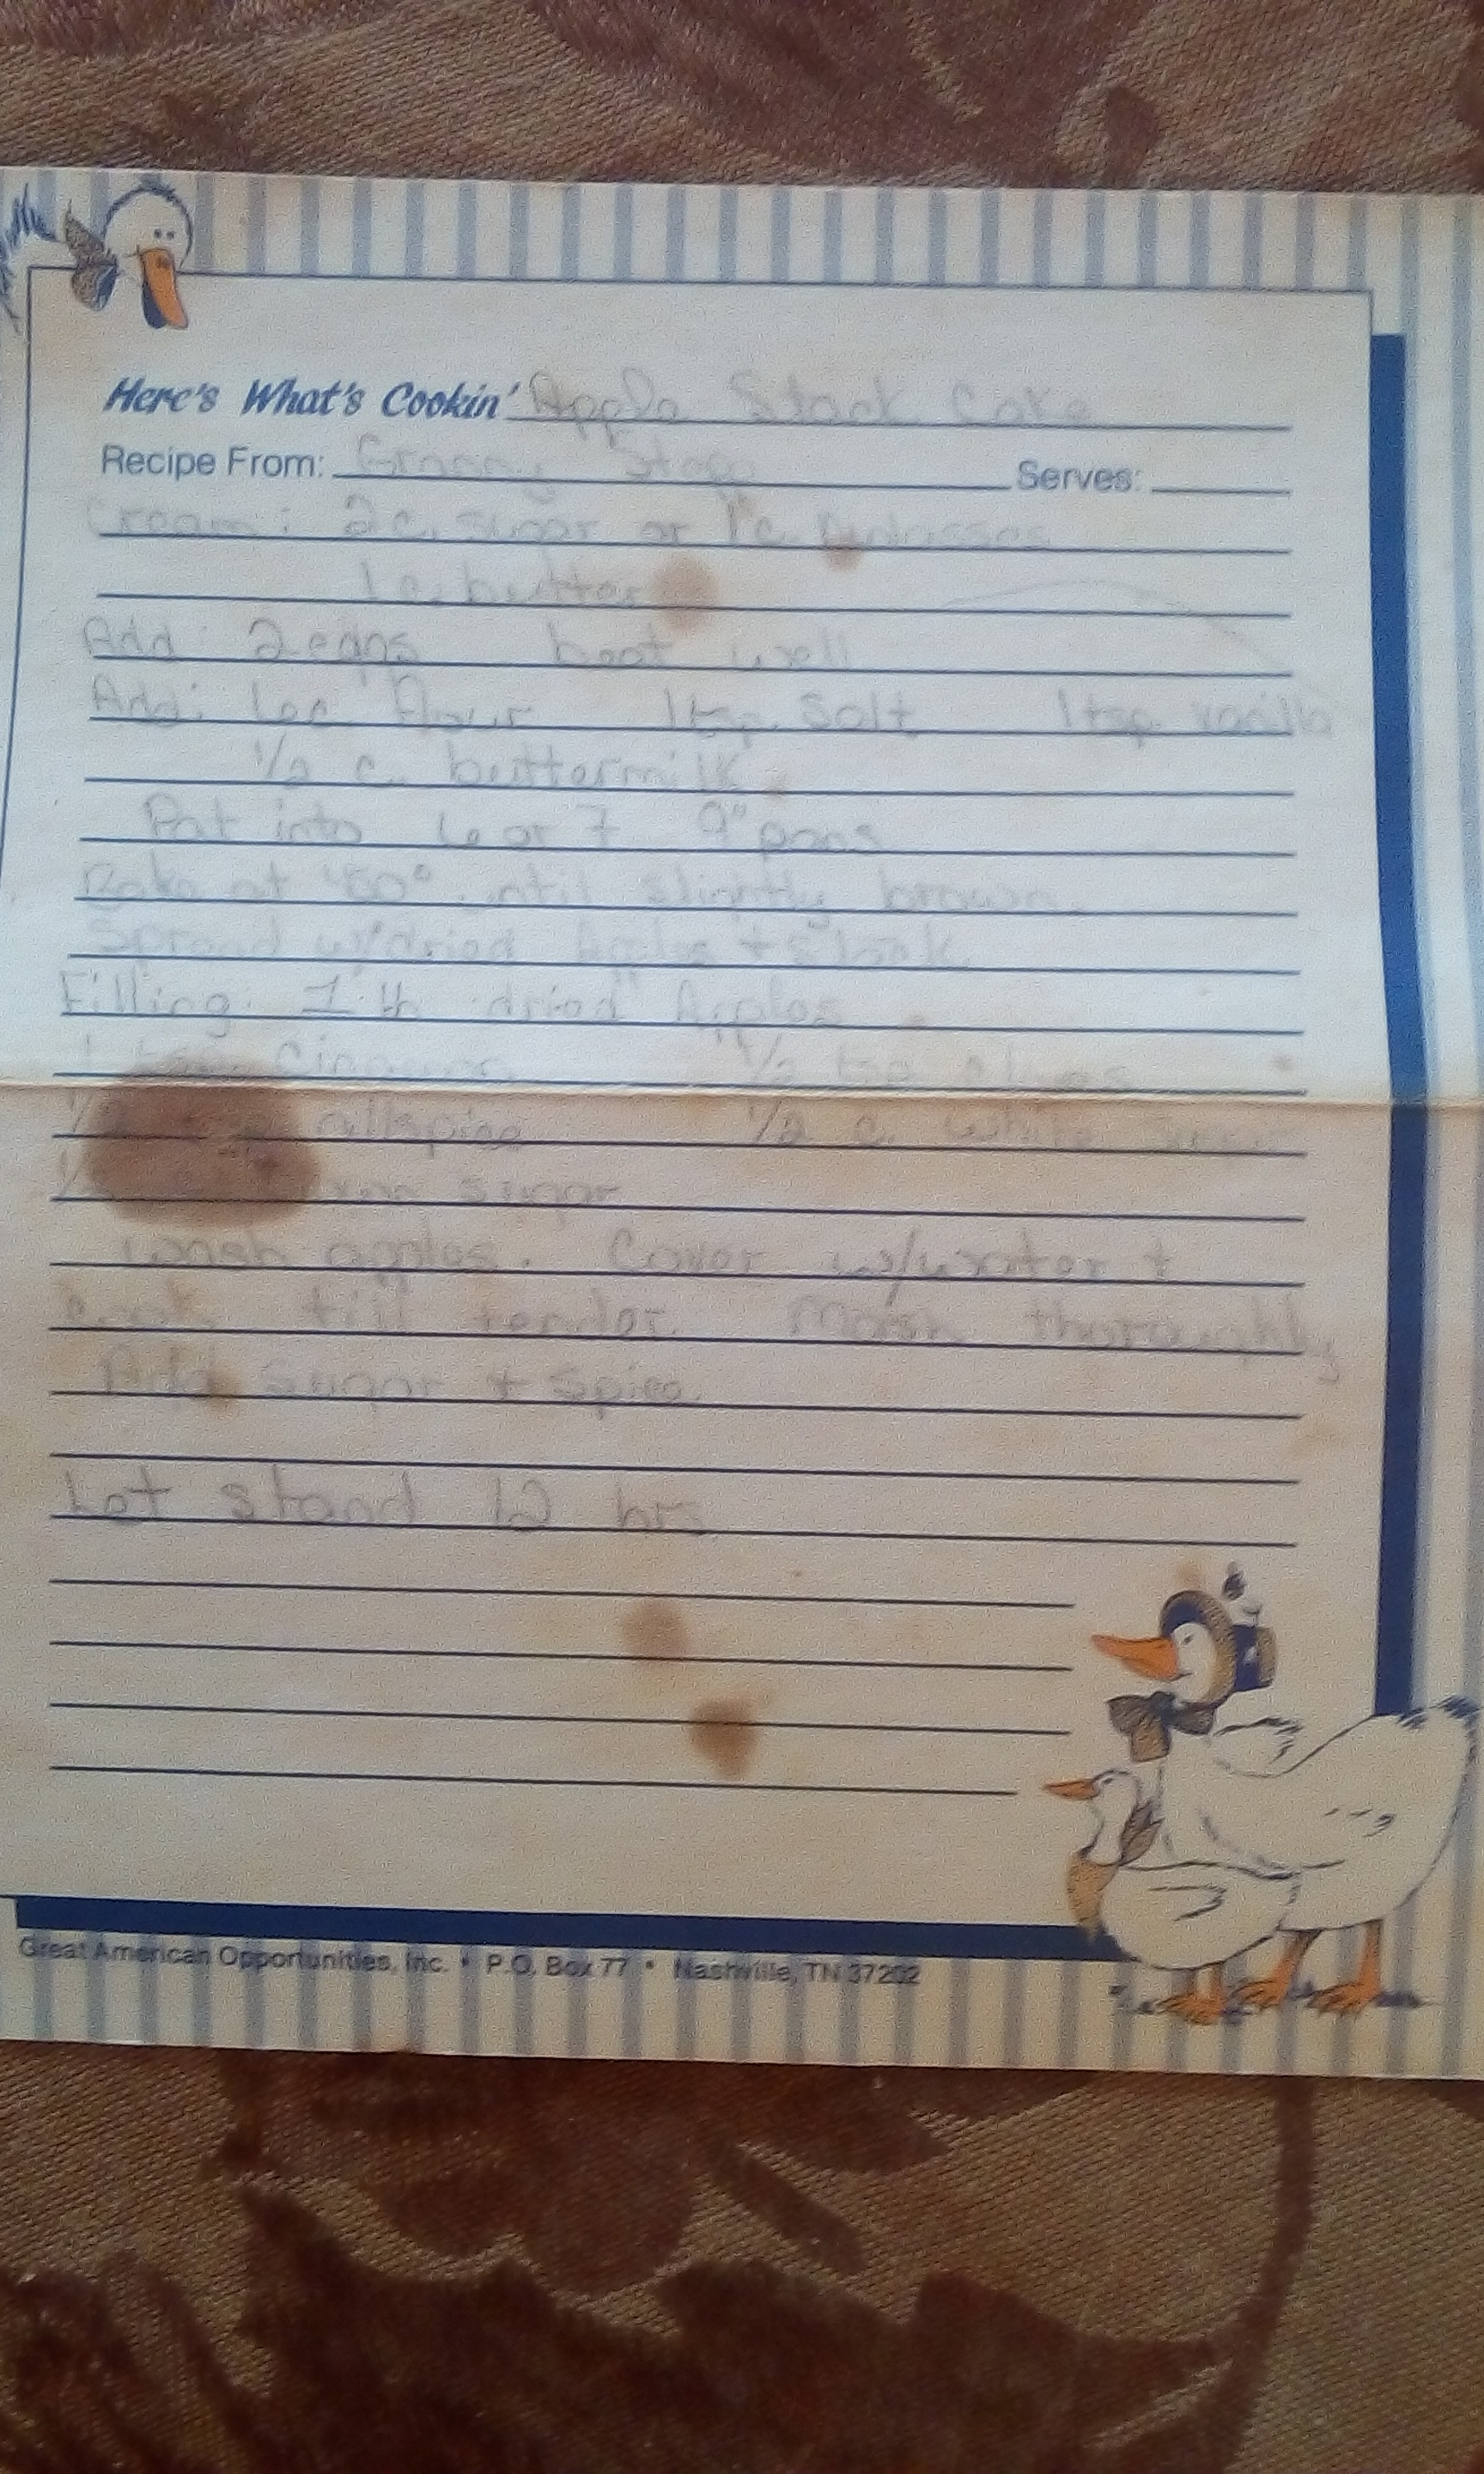 Here's What's Cookin' Apple Stack Cake
Recipe From: Granny Serves:
Cream: 2 c. sugar or 1 c. molasses
1 c. butter
Add: 2 eggs beat well
Add: 6 c. flour 1 tsp. salt 1 tsp. vanilla
1/2 c. buttermilk
Pat into 6 or 7 9" pans
Bake at until slightly brown.
Spread w/dried Apples + stack.
Filling: 1 lb dried Apples
1 tsp. cinnamon 1/2 tsp cloves
allspice 1/2 c. white sugar
sugar
Wash apples. Cover w/water +
cook till tender. Mash thoroughly
Add sugar + spice.
Let stand 12 hrs
Great American Opportunities, Inc. • P.O. Box 77 • Nashville, TN 37202